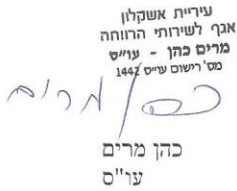 עיריית אשקלון
אגף לשירותי הרווחה
מרים כהן - עו"ס
מס' רישום עו"ס 1442
כהן מרים
כהן מרים
עו"ס